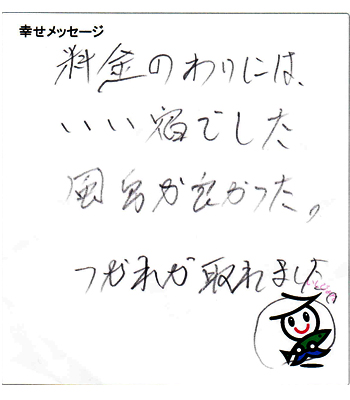 幸せメッセージ
料金のわりには、
いい宿でした
風呂が良かった。
つかれが取れました